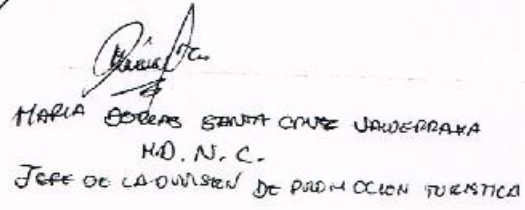 MARIA DORCAS SANTA CRUZ VALDERRAMA
M.D.N.C.
JEFE DE LA DIVISION DE PROMOCION TURISTICA